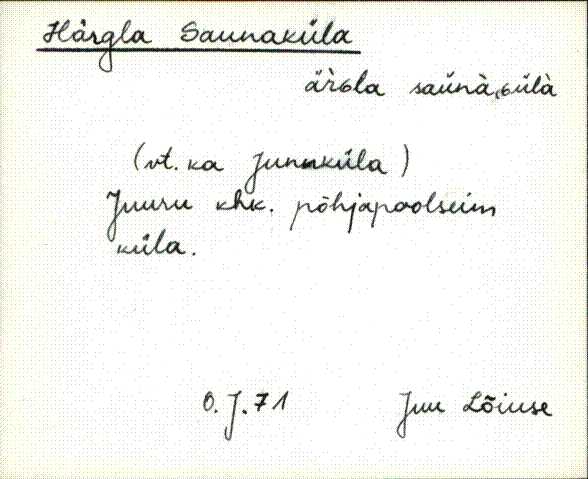 Härgla Saunaküla
ärGla saùnà,Gülà
(vt. ka Junnküla)
Juuru khk. põhjapoolseim
küla.
O. J. 71 Juu Lõiuse